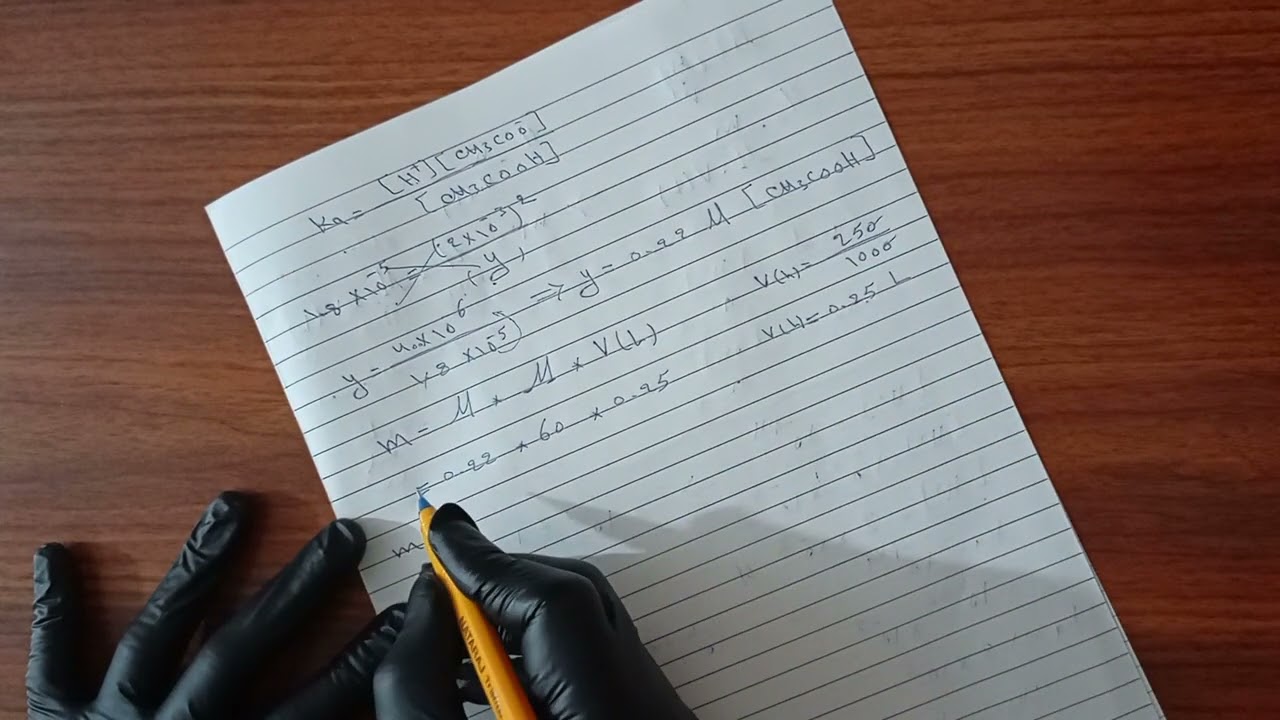 Ka = [H⁺][CH3COO⁻] / [CH3COOH]
1.8 × 10⁻⁵ = (2×10⁻³)² / (y)
y = 4.0×10⁻⁶ / 1.8×10⁻⁵ ⇒ y = 0.22 M [CH3COOH]
m = M × M × V(L)
V(L) = 250 / 1000
= 0.22 × 60 × 0.25
V(L) = 0.25 L
m
NATARAJ